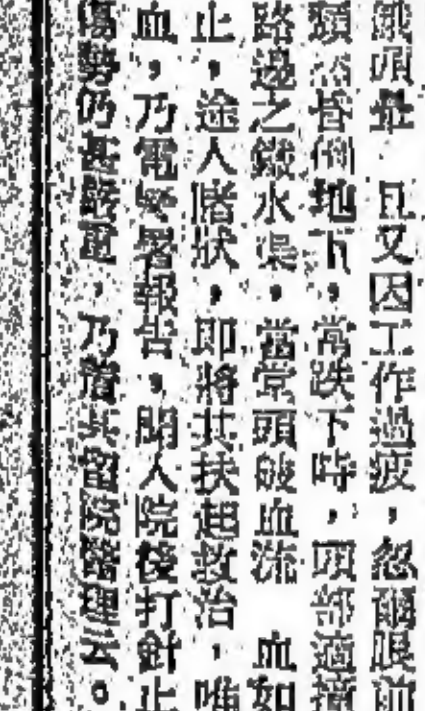 餓頭暈 且又因工作過疲，忽爾眼前
昏倒地下，當跌下時，頭部適撞
路邊之鐵水渠，當堂頭破血流 血如
止，途人睹狀，即將其扶起救治，唯
血，乃電警署報告，聞入院後打針止
傷勢仍甚嚴重，乃着其留院醫理云。